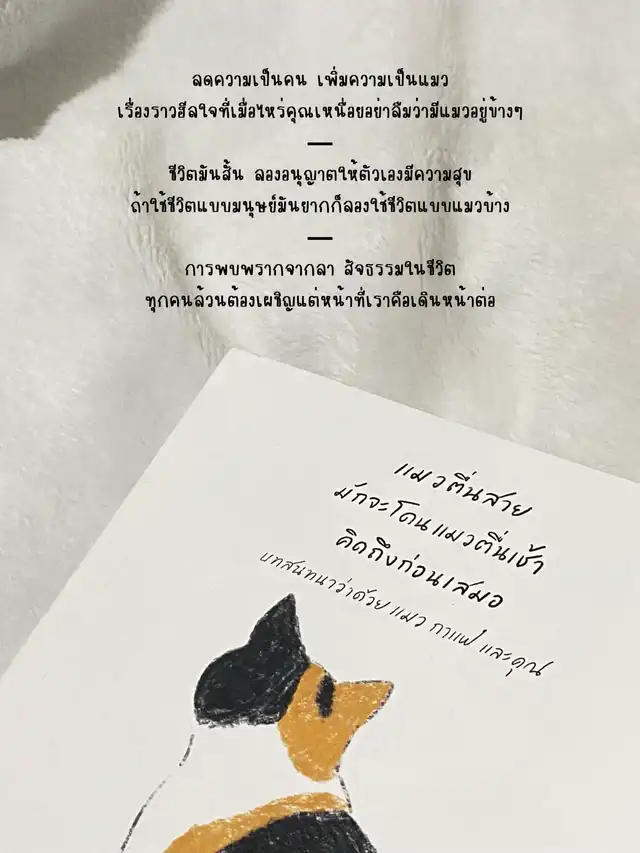 ลดความเป็นคน เพิ่มความเป็นแมว
เรื่องราวฮีลใจที่เมื่อไหร่คุณเหนื่อยอย่าลืมว่ามีแมวอยู่ข้างๆ
ชีวิตมันสั้น ลองอนุญาตให้ตัวเองมีความสุข
ถ้าใช้ชีวิตแบบมนุษย์มันยากก็ลองใช้ชีวิตแบบแมวบ้าง
การพบพรากจากลา สัจธรรมในชีวิต
ทุกคนล้วนต้องเผชิญแต่หน้าที่เราคือเดินหน้าต่อ
แมวตื่นสาย
มักจะโดนแมวตื่นเช้า
คิดถึงก่อนเสมอ
บทสนทนาว่าด้วย แมว กาแฟ และคุณ